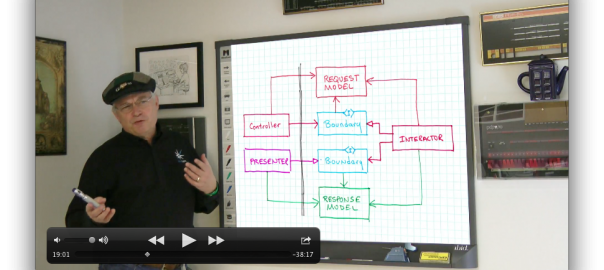 REQUEST
MODEL
Controller
Boundary
INTERACTOR
PRESENTER
Boundary
RESPONSE
MODEL
19:01
-38:17